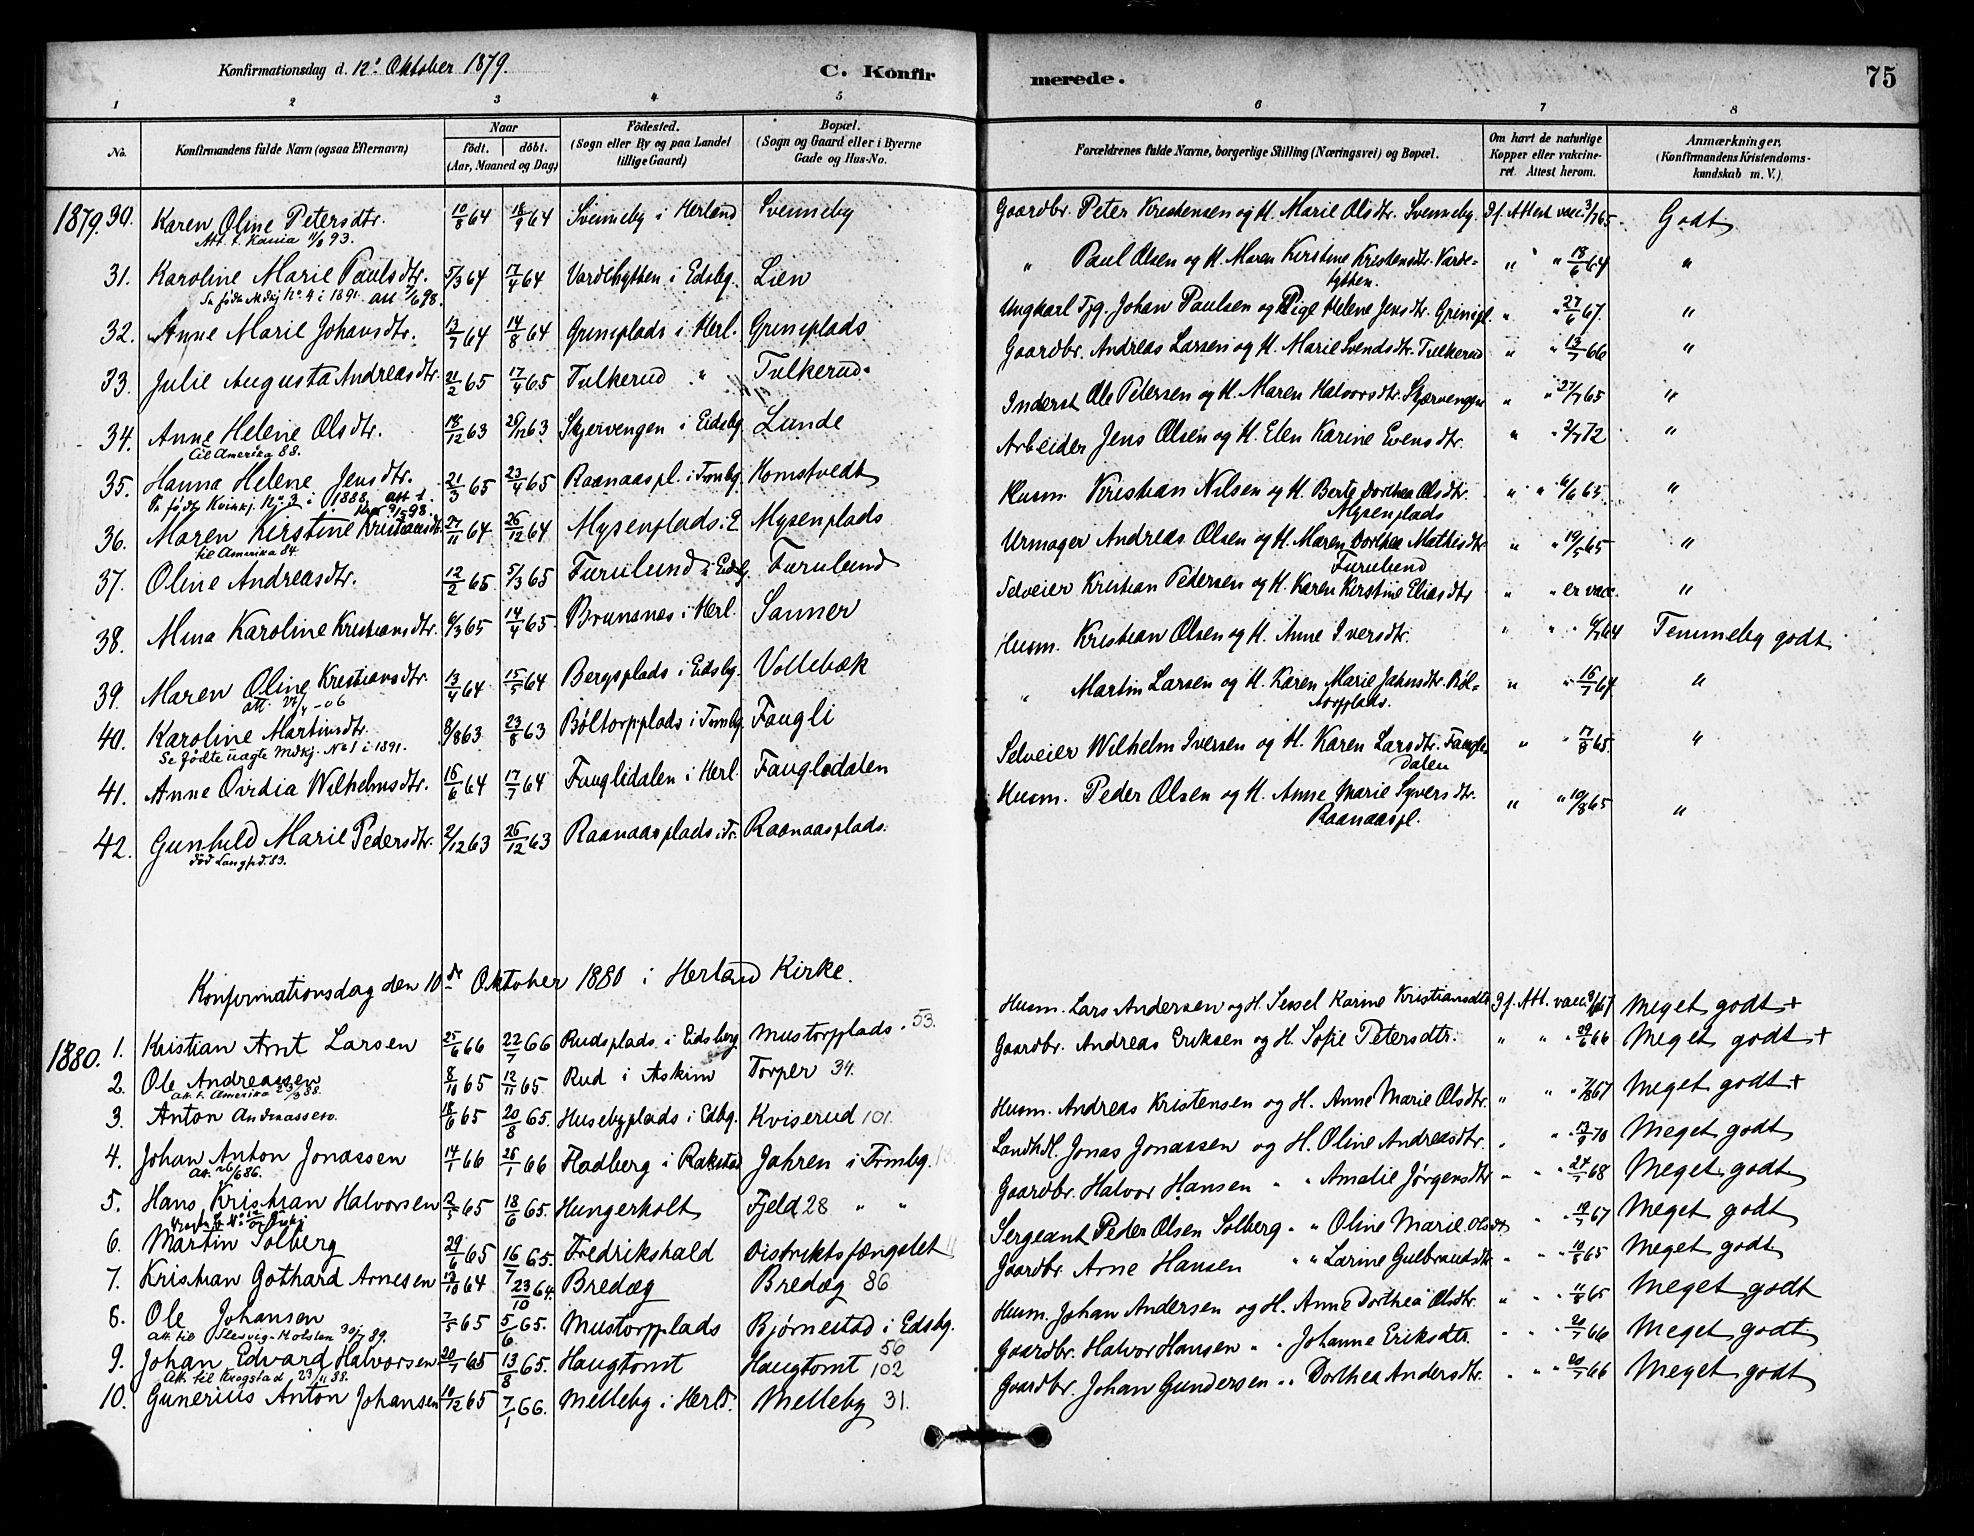 Konfirmationsdag d. 12te Oktober 1879.
C. Konfirmerede.
75
1 2 3 4 5 6 7 8
No. Konfirmandens fulde Navn (ogsaa Efternavn) Naar født. døbt. (Aar, Maaned og Dag) Fødested. (Sogn eller By og paa Landet tillige Gaard) Bopæl. (Sogn og Gaard eller i Byerne Gade og Hus-No. Forældrenes fulde Navne, borgerlige Stilling (Næringsvei) og Bopæl. Om havt de naturlige Kopper eller vakcineret. Attest herom. Anmærkninger. (Konfirmandens Kristendomskundskab m. V.)
1879. 30. Karen Oline Petersdtr. 10/8 64 18/9 64 Svenneby i Herland Svenneby Gaardbr. Peter Kristensen og H. Marie Olsdtr. Svenneby. If. Attest vacc. 3/7 65. Godt
Att. t. Kania 11/6 93.
31. Karoline Marie Paulsdtr. 5/3 64 17/4 64 Vardehytten i Edsbg. Lien " Paul Olsen og H. Maren Kirstine Kristensdtr. Vardehytten. " " 18/6 64 "
Se fødte Mdkj No. 4 i 1891. att 7/6 98.
32. Anne Marie Johansdtr. 13/7 64 14/8 64 Grimsplads i Herl. Grimsplads Ungkarl Tjg. Johan Paulsen og Pige Helene Jensdtr. Grimspl. " " 27/6 67. "
33. Julie Augusta Andreasdtr. 21/2 65 17/4 65 Tulkerud " Tulkerud Gaardbr. Andreas Larsen og H. Marie Svendsdtr. Tulkerud " " 13/7 66 "
34. Anne Helene Olsdtr. 18/12 63 26/12 63 Skjervengen i Eidsbg Lunde Inderst Ole Petersen og H. Maren Halvorsdtr. Skjærvengen " " 27/7 65 "
til Amerika 88.
35. Hanna Helene Jensdtr. 21/3 65 23/4 65 Raanaaspl. i Trombg. Komstvedt Arbeider Jens Olsen og H. Elen Karine Evensdtr. " " 2/7 72 "
Se fødte Kvinkj. No. 3 i 1888
36. Maren Kirstine Kristiansdtr. 27/11 64 26/12 64 Mysenplads i E Mysenplads Husm. Kristian Nilsen og H. Berte Dorthea Olsdtr. Mysenplads " " 6/6 65. "
til Amerika 84.
37. Oline Andreasdtr. 12/2 65 5/3 65 Furulund i Eidsbg. Furulund Urmager Andreas Olsen og H. Maren Dorthea Mathisdtr Furulund " " 19/5 65 "
38. Mina Karoline Kristiansdtr. 6/3 65 14/4 65. Brunsnes i Herl. Sanner Selveier Kristian Pedersen og H. Karen Kirstine Eliasdtr " " er vacc. "
39. Maren Oline Kristiansdtr. 13/4 64 15/5 64 Bergsplads i Eidsbg. Vollebæk Husm. Kristian Olsen og H. Anne Iversdtr. " " 64 Temmelig godt
40. Karoline Martinsdtr. 8/8 63 23/8 63 Bøltorpplads i Trombg. Faugli " Martin Larsen og H. Karen Marie Jahnsdtr. Bøltorpplads. " " 16/7 64 "
Se fødte uægte Mdkj. No 1 i 1891.
41. Anne Ovidia Wilhelmsdtr. 16/6 64 17/7 64 Fauglidalen i Herl Fauglidalen Selveier Wilhelm Iversen og H. Karen Larsdtr. Fauglidalen " " 17/8 65. "
42. Gunhild Marie Pedersdtr. 2/12 63 26/12 63 Raanaasplads i Tr. Raanaasplads. Husm. Peder Olsen og H. Anne Marie Syversdtr. Raanaaspl. " " 10/8 65 "
Konfirmationsdag den 10de Oktober 1880 i Herland Kirke.
1880. 1. Kristian Arnt Larsen 25/6 66 22/7 66 Rudsplads i Eidsberg Mustorpplads. 53. Husm. Lars Andersen og H. Sessel Karine Kristiansdtr If. Att. vacc. 67 Meget godt +
2. Ole Andreassen 8/10 65 12/11 65 Rud i Askim Torper 34. Gaardbr. Andreas Eriksen og H. Sofie Petersdtr. " " 29/6 66 Meget godt +
Att. t. Amerika 88.
3. Anton Andreassen. 18/6 65 20/8 65. Husebyplads i Edbg. Kviserud 101. Husm. Andreas Kristensen og H. Anne Marie Olsdtr. " " 7/8 67 Meget godt +
4. Johan Anton Jonassen 14/1 66 25/1 66 Fladberg i Rakstad Jahren i Trombg. Landhdl. Jonas Jonassen og H. Oline Andreasdtr. " " 13/9 70 Meget godt
Att. 26/6 86.
5. Hans Kristian Halvorsen 2/5 65 18/6 65. Hungerholt Fjeld 28 " " Gaardbr. Halvor Hansen " " Amalie Jørgensdtr " " 24/7 68 Meget godt
6. Martin Solberg 29/6 65 16/7 65. Fredrikshald Distriktsfængslet Sergeant Peder Olsen Solberg " " Oline Marie Olsdtr " 67 Meget godt
7. Kristian Gothard Arnesen 12/10 64 23/10 64. Bredæg Bredæg 86 Gaardbr. Arne Hansen " " Larine Gulbrandsdtr. " " 10/8 65 Meget godt
8. Ole Johansen 7/5 65 5/6 65. Mustorpplads Bjørnestad i Edsbg. 56 Husm. Johan Andersen og H. Anne Dorthea Olsdtr. " " 11/8 65 Meget godt
Att. til Slesvig-Holsten 30/7 89.
9. Johan Edvard Halvorsen 20/7 65 13/8 65. Haugtomt Haugtomt 102 Gaardbr. Halvor Hansen " " Johanne Eriksdtr. " " 20/7 66 Meget godt
Att. til Krogstad 23/11 88.
10. Gunerius Anton Johansen 10/12 65 7/1 66. Melleby i Herld. Melleby 31. Gaardbr. Johan Gundersen " " Dorthea Andersdtr. " " 20/7 66 Meget godt